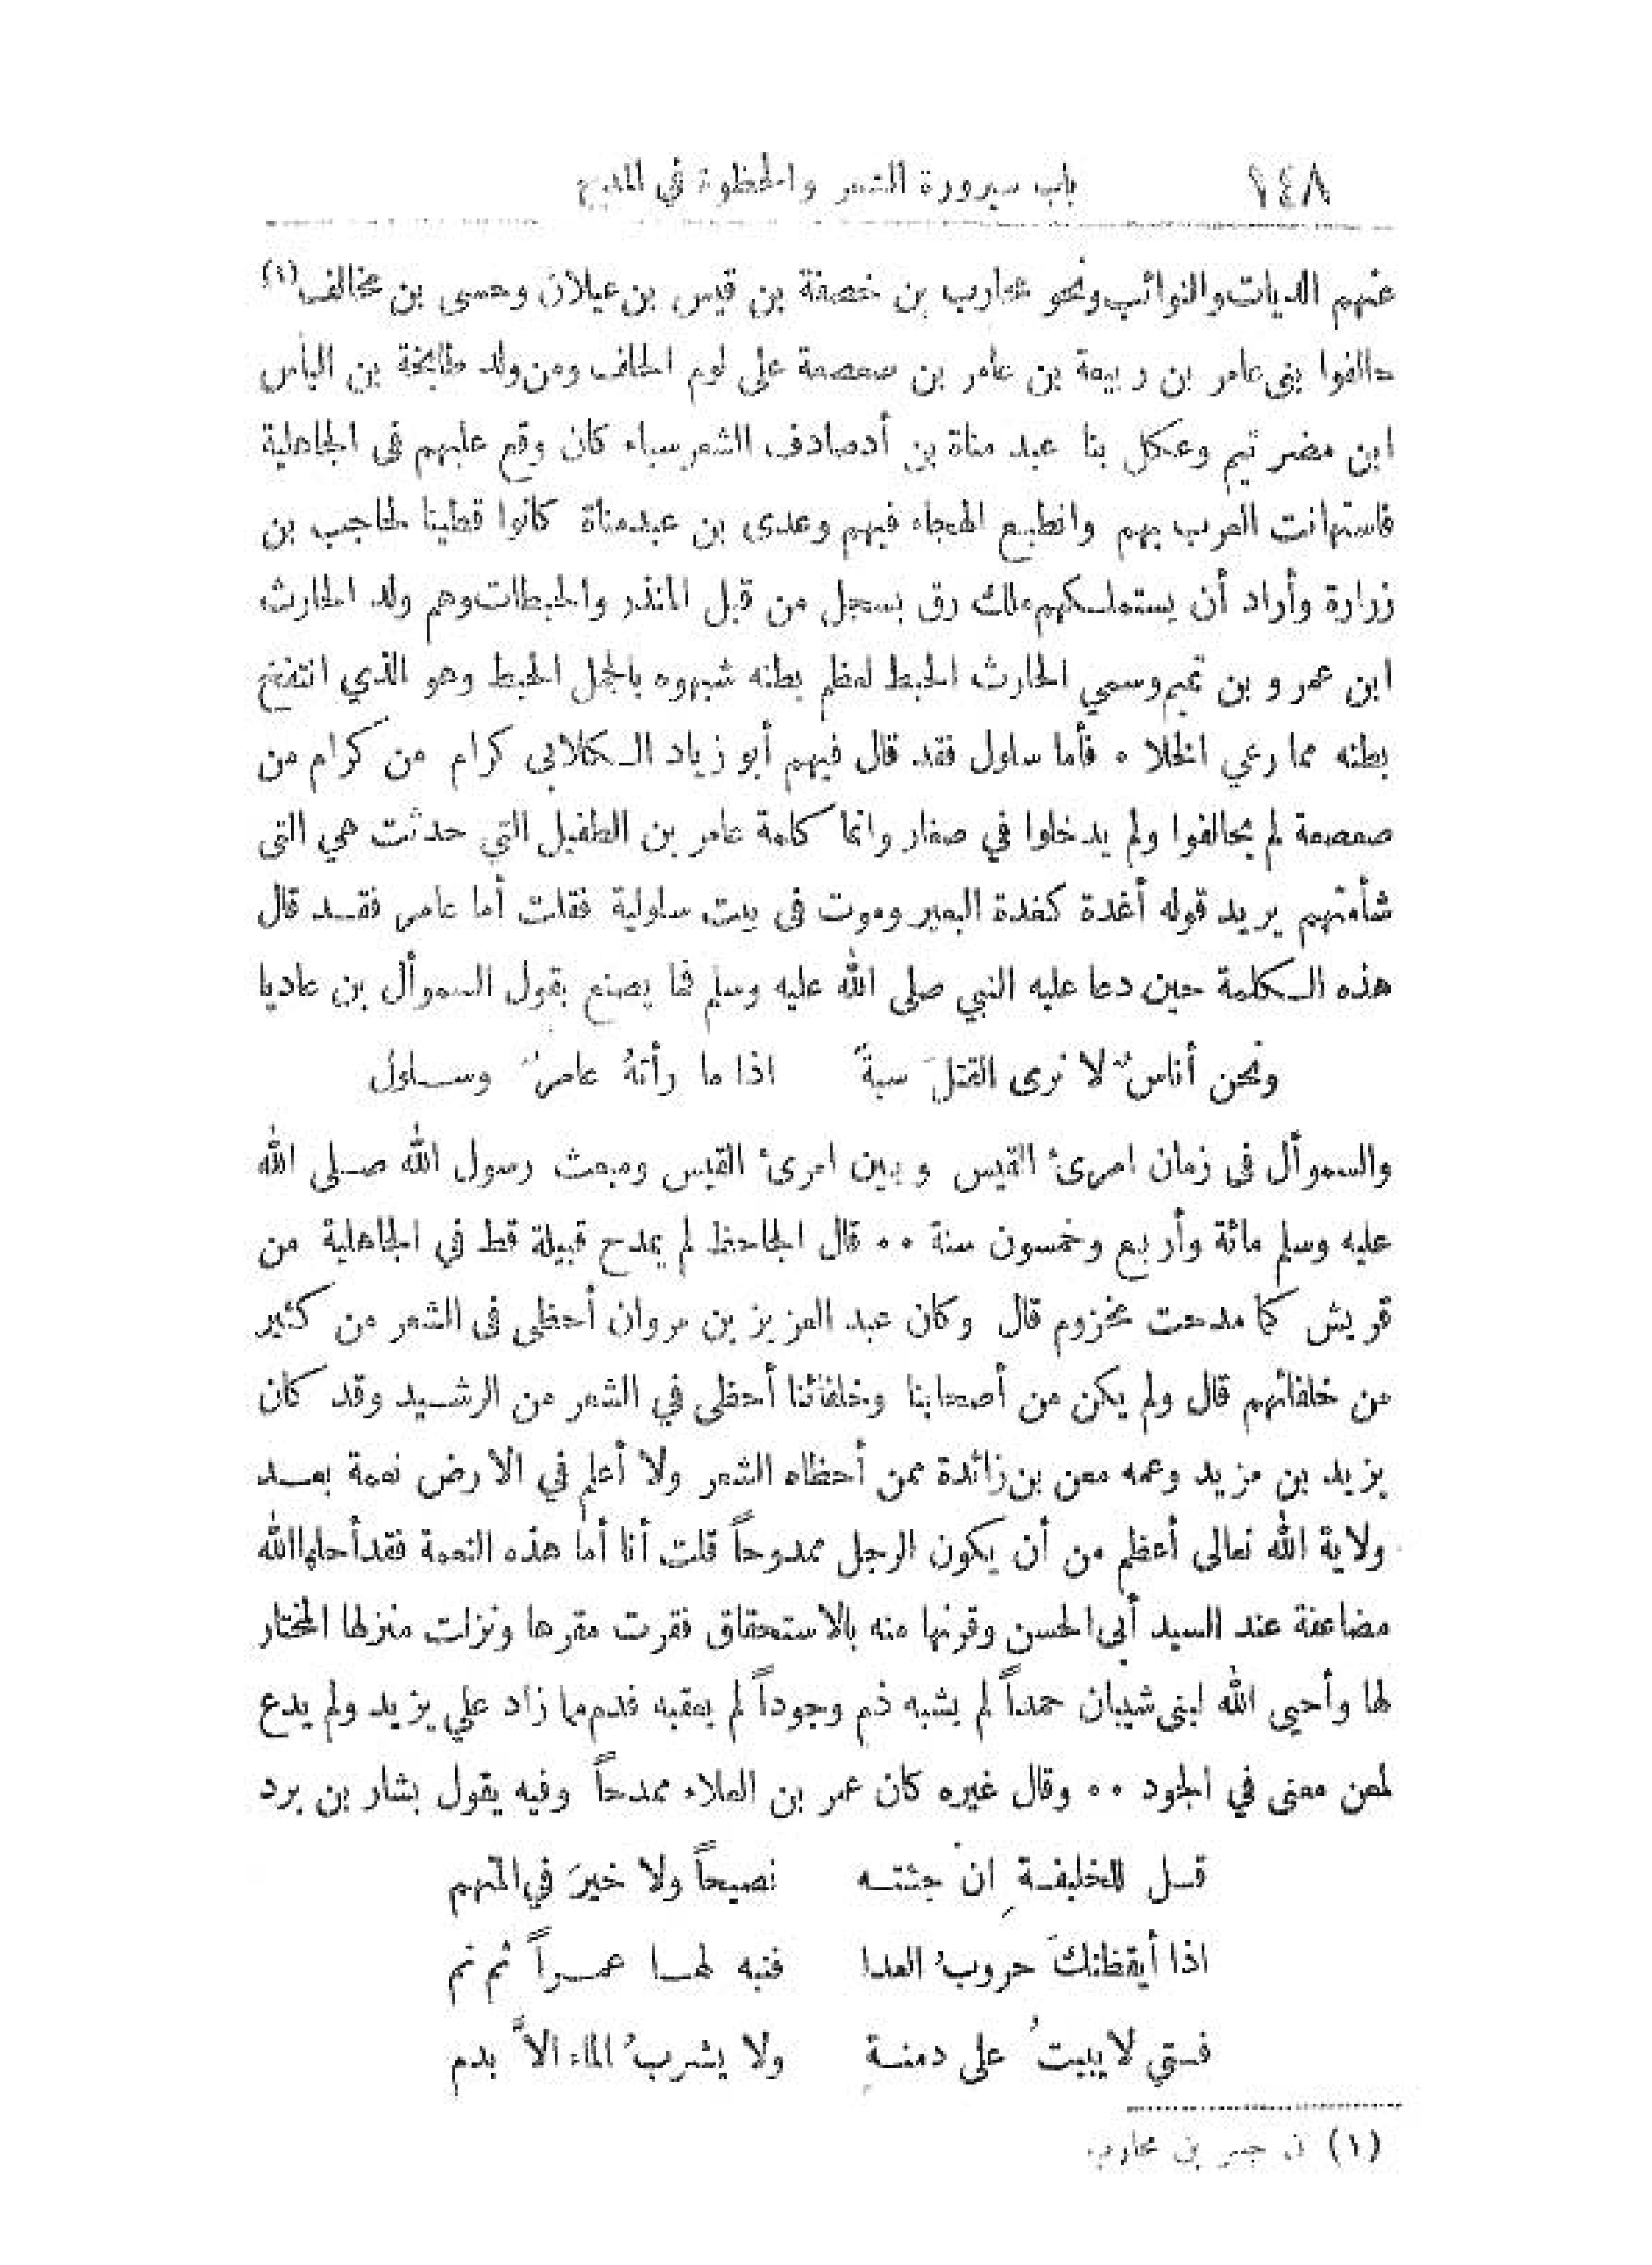 ١٤٨ باب سيرورة الشعر والحظوة في المديح
عنهم الديات والنوائب ونحو محارب بن خصفة بن قيس بن عيلان وحسى بن مخالف (١)
حالفوا بني عامر بن ربيعة بن عامر بن صعصعة على لوم الحلف ومن ولد طابخة بن الياس
ابن مضر تيم وعكل بنا عبد مناة بن أد صادف الشعر سباء كان وقع عليهم فى الجاهلية
فاستهانت العرب بهم وانطبع الهجاء فيهم وعدى بن عبد مناة كانوا قطينا لحاجب بن
زرارة وأراد أن يستملكهم ملك رق بسجل من قبل المنذر والحبطات وهم ولد الحارث
ابن عمرو بن تميم وسمي الحارث الحبط لعظم بطنه شبهوه بالجمل الحبط وهو الذي انتفخ
بطنه مما رعي الخلا ٠ فأما سلول فقد قال فيهم أبو زياد الكلابى كرام من كرام من
صعصعة لم يحالفوا ولم يدخلوا في صغار وانما كلمة عامر بن الطفيل التي حدثت هي التى
شأمتهم يريد قوله أغدة كغدة البعير وموت فى بيت سلولية فقلت أما عامر فقد قال
هذه الكلمة حين دعا عليه النبي صلى الله عليه وسلم فما يصنع بقول السموأل بن عاديا
ونحن أناسٌ لا نرى القتلَ سبةً اذا ما رأتهُ عامرٌ وسلول
والسموأل فى زمان امرئ القيس وبين امرئ القيس ومبعث رسول الله صلى الله
عليه وسلم مائة وأربع وخمسون سنة ٠٠ قال الجاحظ لم يمدح قبيلة قط في الجاهلية من
قريش كما مدحت مخزوم قال وكان عبد العزيز بن مروان أحظى فى الشعر من كثير
من خلفائهم قال ولم يكن من أصحابنا وخلفائنا أحظى في الشعر من الرشيد وقد كان
يزيد بن مزيد وعمه معن بن زائدة ممن أحظاه الشعر ولا أعلم في الارض نعمة بعد
ولاية الله تعالى أعظم من أن يكون الرجل ممدوحاً قلت أنا أما هذه النعمة فقد أحلها الله
مضاعفة عند السيد أبى الحسن وقرنها منه بالاستحقاق فقرت مقرها ونزلت منزلها المختار
لها وأحيى الله لبنى شيبان حمداً لم يشبه ذم وجوداً لم يعقبه فدم مما زاد علي يزيد ولم يدع
لمعن معنى في الجود ٠٠ وقال غيره كان عمر بن العلاء ممدحاً وفيه يقول بشار بن برد
قل للخليفةِ ان جئته نصيحاً ولا خيرَ في المتهم
اذا أيقظتكَ حروبُ العدا فنبه لها عمراً ثم نم
فتى لا يبيتُ على دمنةٍ ولا يشربُ الماء الاَّ بدم
(١) ن جسر بن محارب